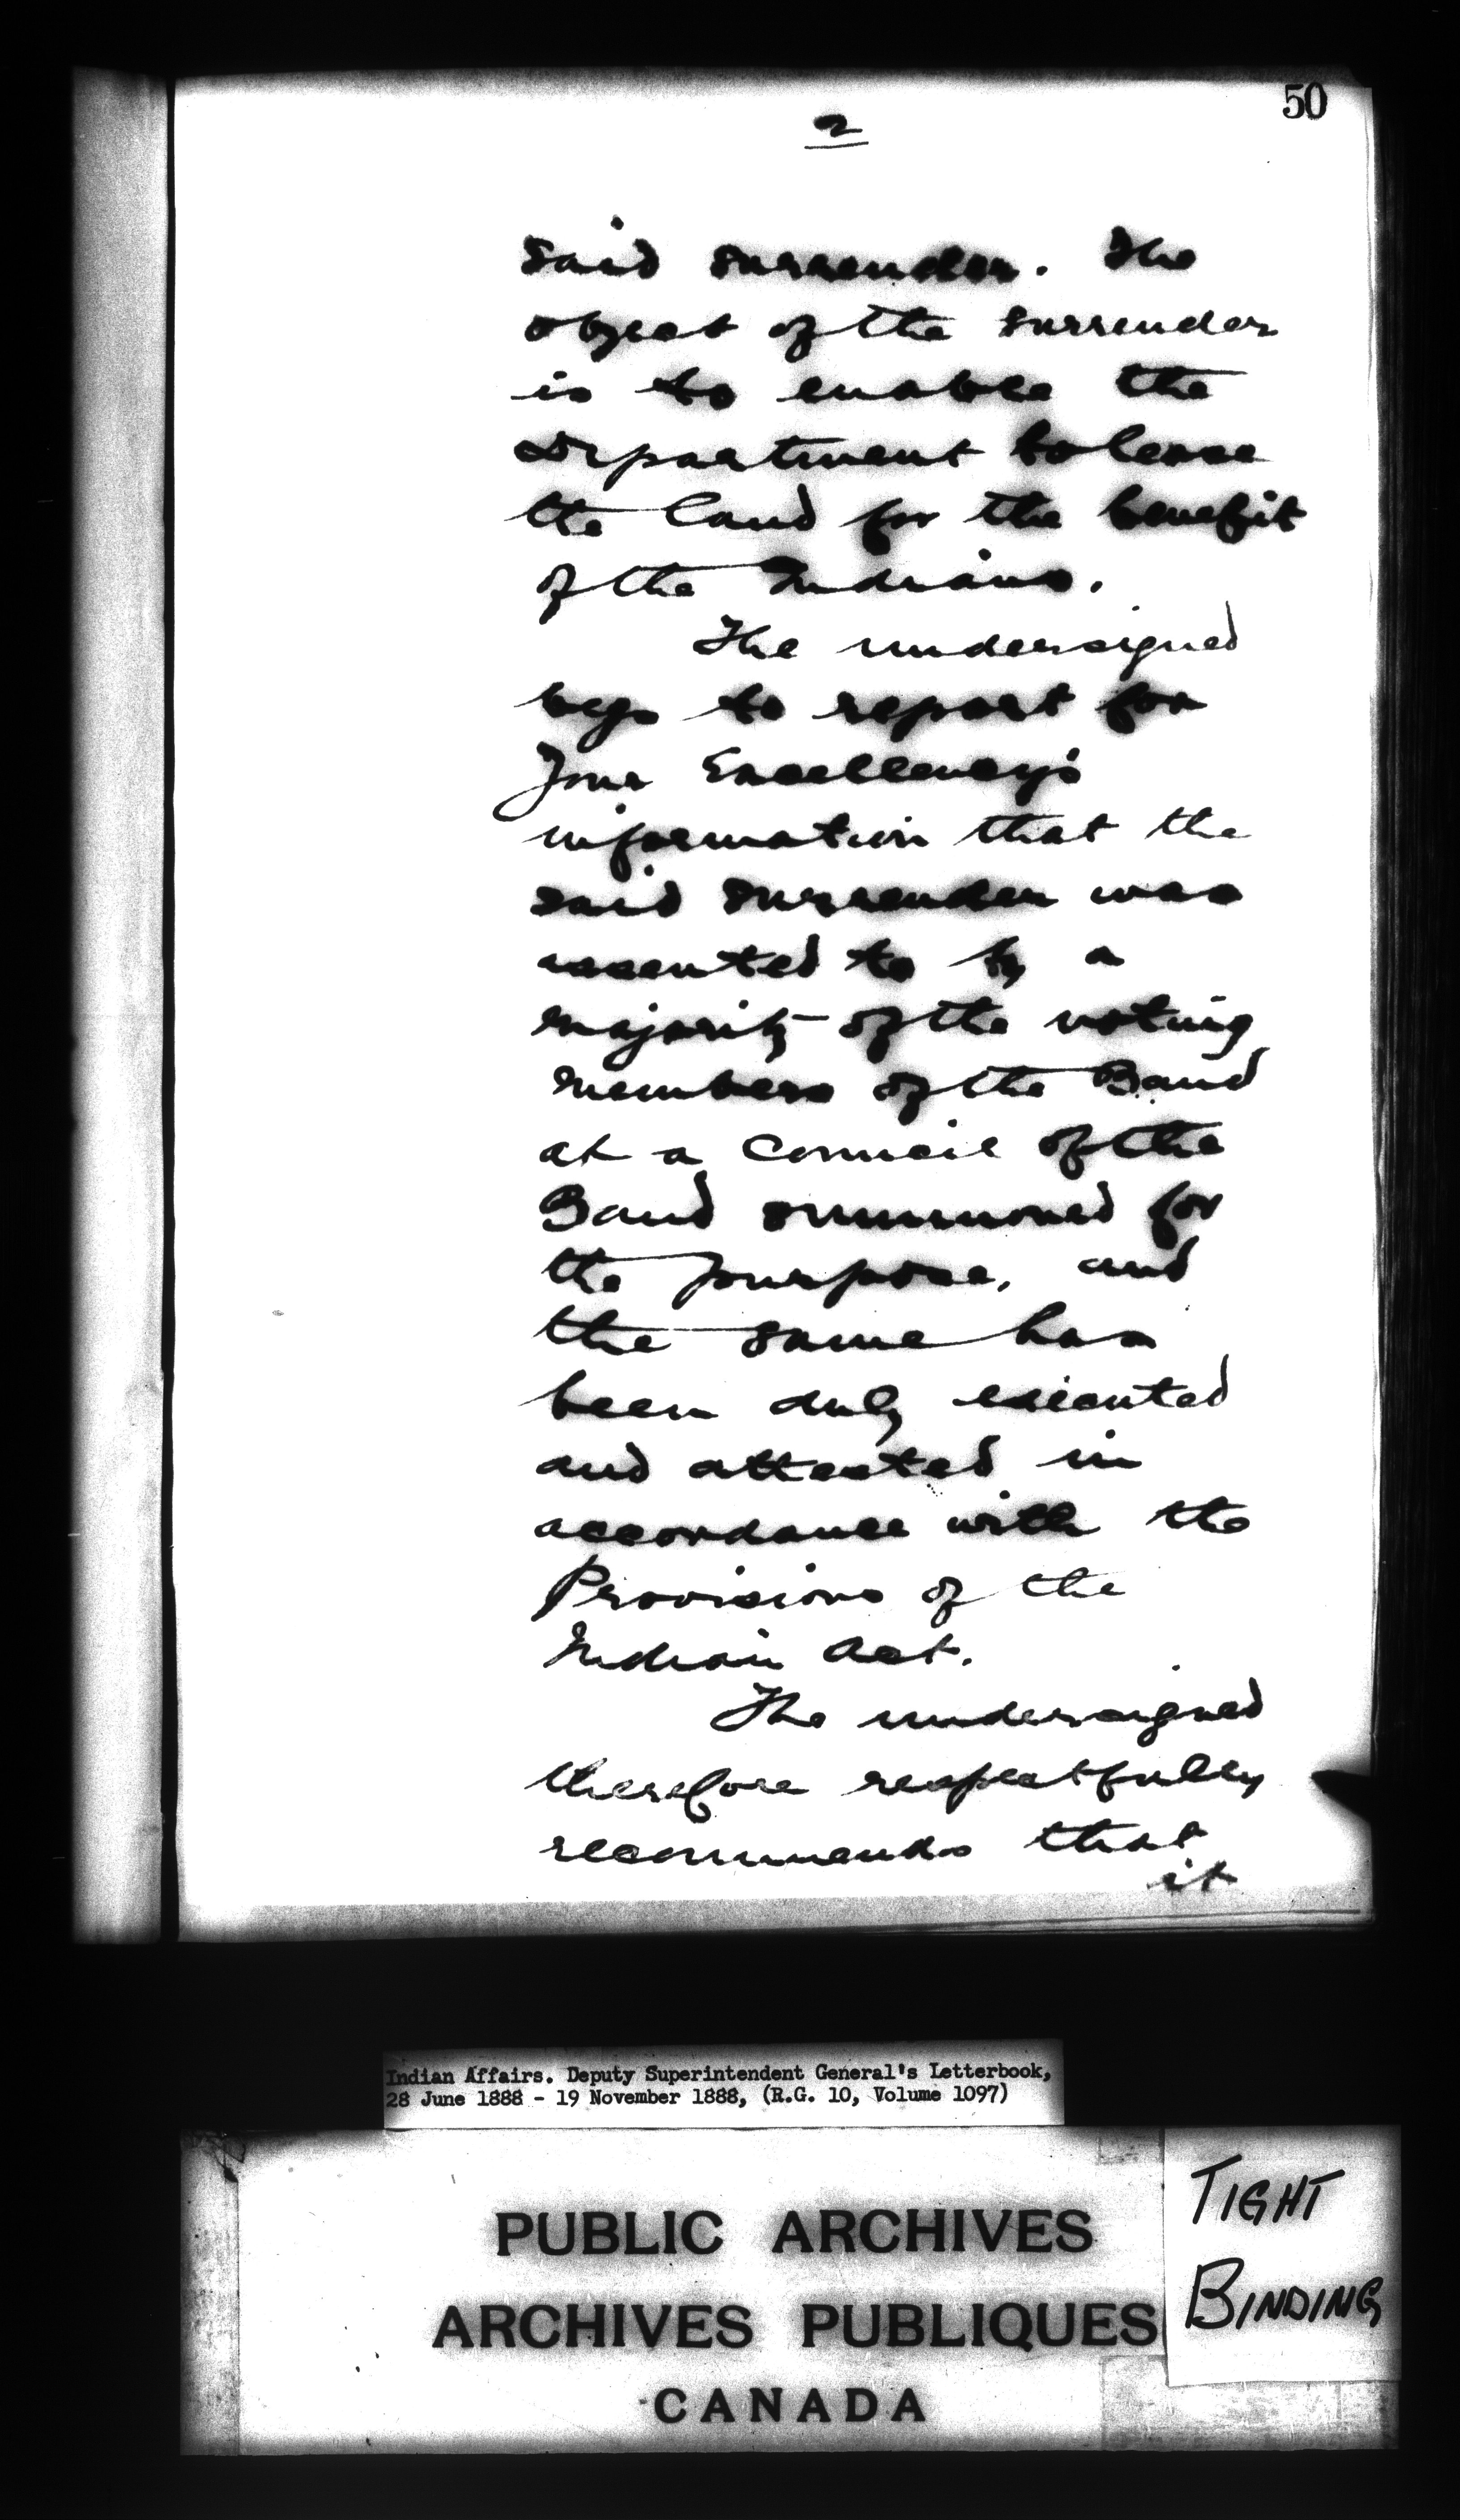 50
2
said surrender. The
object of the surrender
is to enable the
Department to lease
the land for the benefit
of the Indians.
The undersigned
begs to report for
Your Excellency's
information that the
said surrender was
assented to by a
majority of the voting
members of the Band
at a Council of the
Band summoned for
the purpose, and
the same has
been duly executed
and attested in
accordance with the
Provisions of the
Indian Act.
The undersigned
therefore respectfully
recommends that
it
Indian Affairs. Deputy Superintendent General's Letterbook,
28 June 1888 - 19 November 1888, (R.G. 10, Volume 1097)
PUBLIC ARCHIVES
ARCHIVES PUBLIQUES
CANADA
TIGHT
BINDING